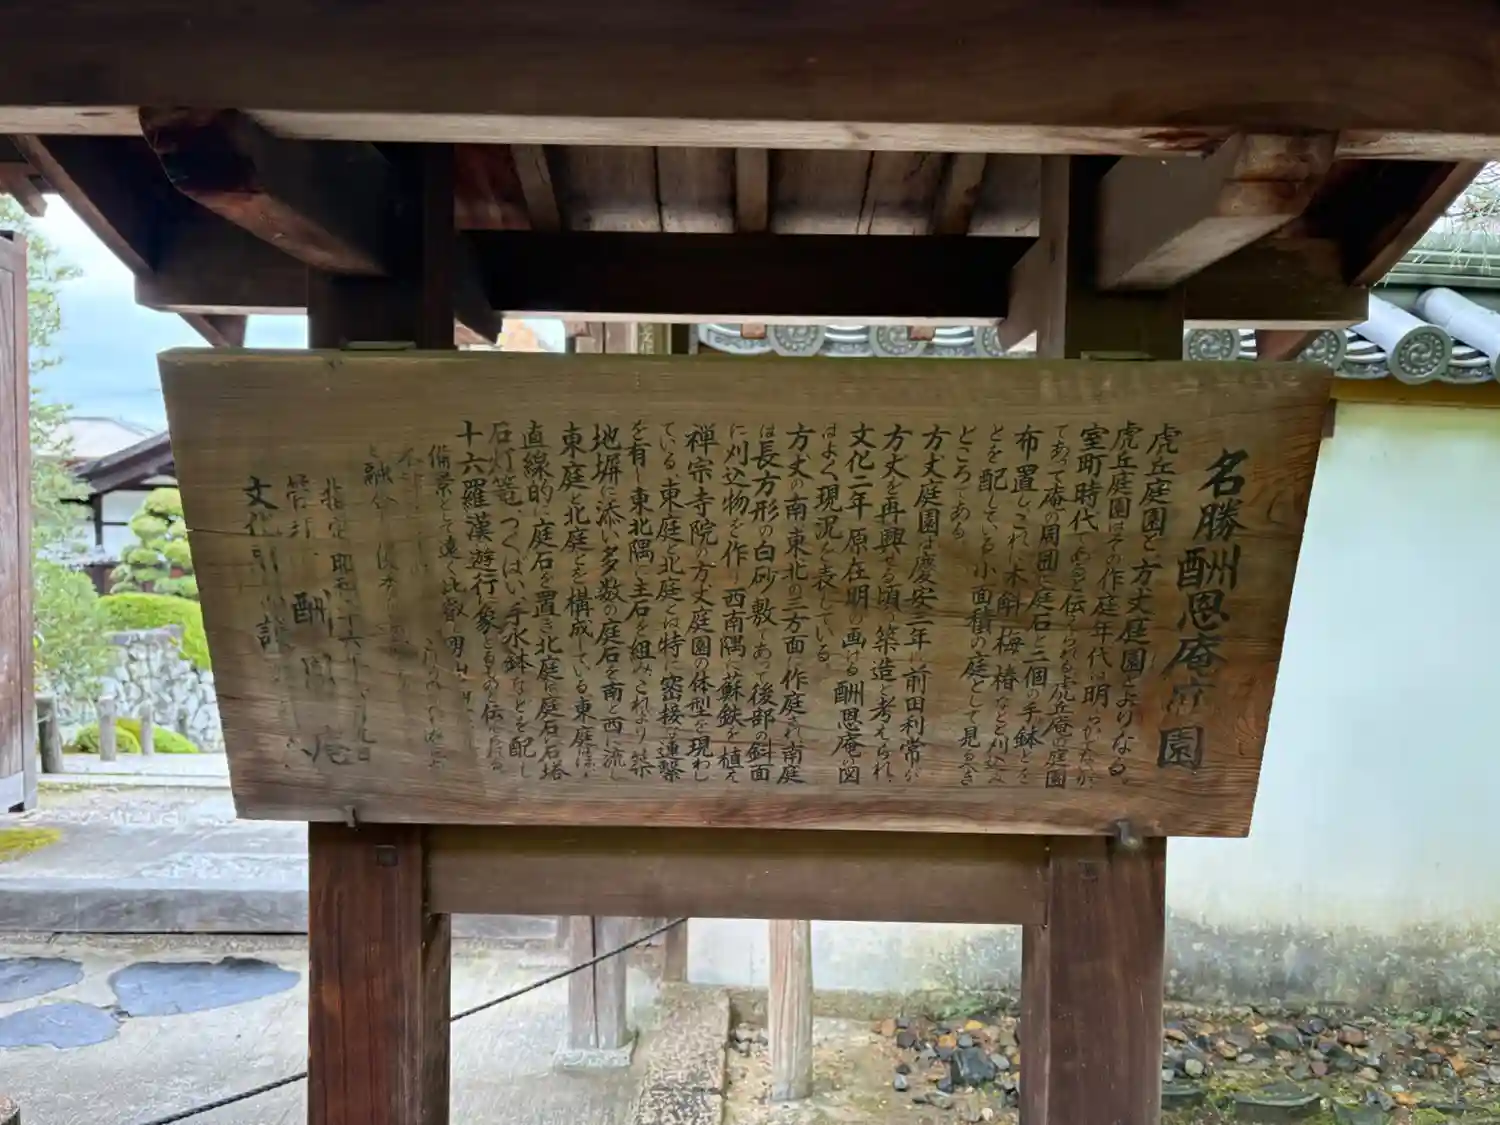 名勝酬恩庵庭園
虎丘庭園と方丈庭園とよりなる。
虎丘庭園はその作庭年代は明らかでないが、
室町時代であると伝えられる虎丘庵の庭園
であって庵の周囲に庭石と三個の手鉢とを
布置し、これに木斛、梅、椿などの刈込み
とを配している小面積の庭として見るべき
ところである
方丈庭園は慶安三年に前田利常が
方丈を再興せる頃に築造と考えられ、
文化二年原在明の画ける酬恩庵の図
はよく現況を表している。
方丈の南、東、北の三方面に作庭され南庭
は長方形の白砂敷であって後部の斜面
に刈込物を作り西南隅に蘇鉄を植え
禅宗寺院の方丈庭園の体型を現わし
ている、東庭と北庭とは特に密接な連繫
を有し東北隅に主石を組み、これより築
地塀に添い多数の庭石を南と西に流し
東庭と北庭とを構成している、東庭はほゞ
直線的に庭石を置き北庭は庭石に石塔
石灯篭、つくばい、手水鉢などを配し
十六羅漢遊行の象ともものと伝えられる
備景として遠く比叡の
と融合し
指定 昭和 十六年
管理 酬恩庵
文化